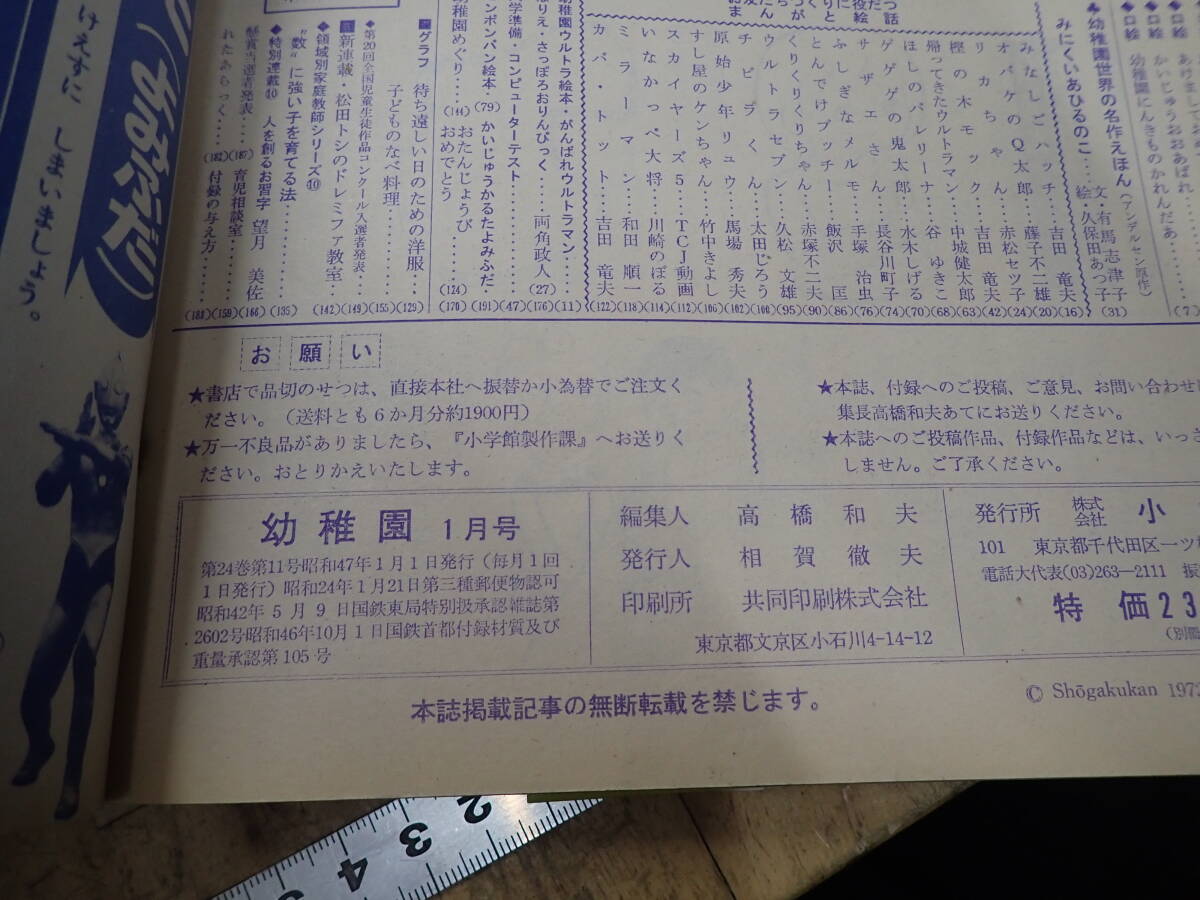 ★口絵 幼稚園にんきものかれんだあ
★口絵 かいじゅうおおあばれ
(7)
★幼稚園世界の名作えほん〈アンデルセン原作〉
みにくいあひるのこ
文・有馬志津子
絵・久保田あつ子 (31)
みなしごハッチ 吉田 竜夫 (16)
オバケのQ太郎 藤子不二雄 (20)
リカちゃん 赤松セツ子 (24)
樫の木モック 吉田 竜夫 (42)
帰ってきたウルトラマン 中城健太郎 (63)
ほしのバレリーナ 谷 ゆきこ (68)
ゲゲゲの鬼太郎 水木しげる (70)
サザエさん 長谷川町子 (74)
ふしぎなメルモ 手塚 治虫 (76)
とんでけプッチー 飯沢 匡 (86)
くりくりくりちゃん 赤塚不二夫 (90)
ウルトラセブン 久松 文雄 (95)
チビラくん 太田じろう (100)
原始少年リュウ 馬場 秀夫 (102)
すし屋のケンちゃん 竹中きよし (106)
スカイヤーズ5 TCJ動画 (112)
いなかっぺ大将 川崎のぼる (114)
ミラーマン 和田 順一 (118)
カバ・トット 吉田 竜夫 (122)
幼稚園ウルトラ絵本・がんばれウルトラマン (11)
ぬりえ・さっぽろおりんぴっく (176)
両角政人 (27)
入学準備・コンピューターテスト (47)
ロンパン絵本 (79) かいじゅうかるたよみふだ (191)
幼稚園めぐり (144)
おたんじょうび おめでとう (124)
(170)
グラフ 待ち遠しい日のための洋服 (129)
子どものなべ料理 (155)
★第20回全国児童生徒作品コンクール入選者発表 (149)
新連載・松田トシのドレミファ教室 (142)
★領域別家庭教師シリーズ⑩
“数”に強い子を育てる法 (135)
★特別連載⑩ 人を創るお習字 望月 美佐 (166)
懸賞当選者発表 (187) 育児相談室 (159)
れたあらっく (182) 付録の与え方 (188)
けえすに しまいましょう。
お願い
★書店で品切のせつは、直接本社へ振替か小為替でご注文く
ださい。(送料とも6か月分約1900円)
★万一不良品がありましたら、『小学館製作課』へお送りく
ださい。おとりかえいたします。
★本誌、付録へのご投稿、ご意見、お問い合わせ
集長高橋和夫あてにお送りください。
★本誌へのご投稿作品、付録作品などは、いっさ
しません。ご了承ください。
幼稚園 1月号
第24巻第11号昭和47年1月1日発行(毎月1回
1日発行)昭和24年1月21日第三種郵便物認可
昭和42年5月9日国鉄東局特別扱承認雑誌第
2602号昭和46年10月1日国鉄首都付録材質及び
重量承認第105号
編集人 高橋和夫
発行人 相賀徹夫
印刷所 共同印刷株式会社
東京都文京区小石川4-14-12
発行所 株式会社 小
101 東京都千代田区一ツ
電話大代表(03)263―2111 振
特価23
本誌掲載記事の無断転載を禁じます。
© Shōgakukan 1972
2
3
4
5